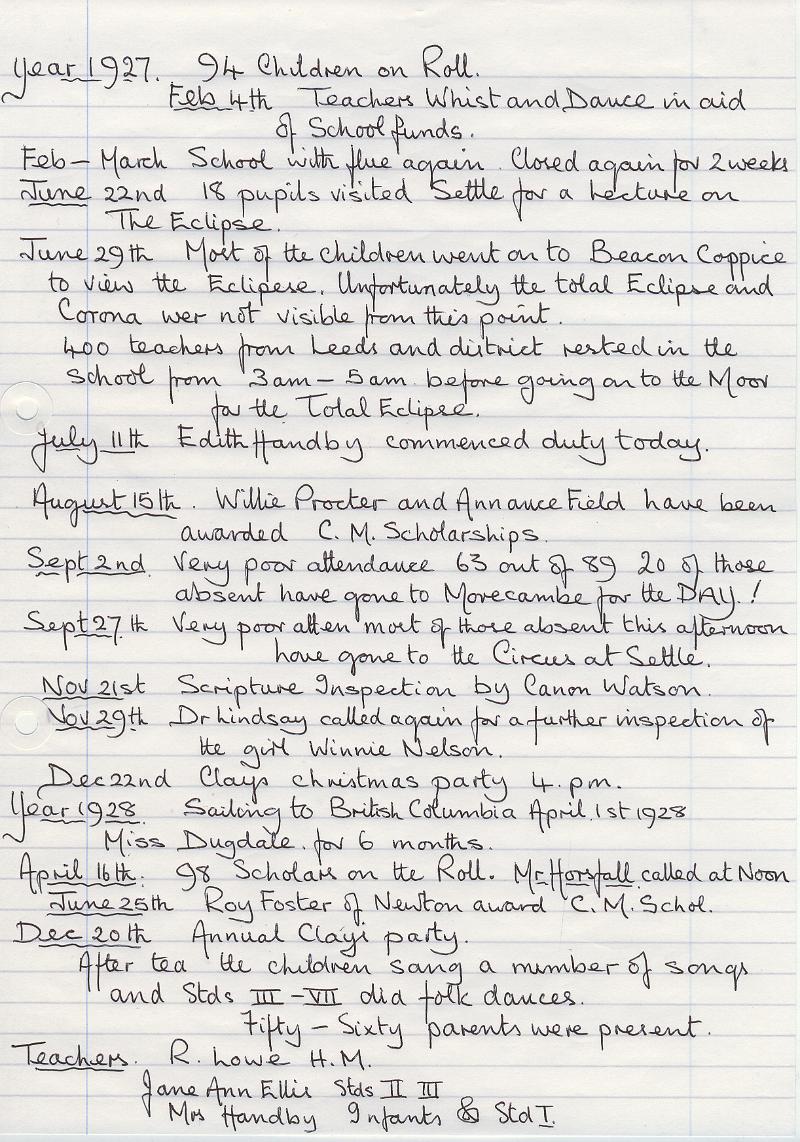 Year 1927. 94 Children on Roll.
Feb 4th Teachers Whist and Dance in aid
of School funds.
Feb - March School with flue again. Closed again for 2 weeks
June 22nd 18 pupils visited Settle for a Lecture on
The Eclipse.
June 29th Most of the children went on to Beacon Coppice
to view the Eclipese. Unfortunately the total Eclipse and
Corona wer not visible from this point.
400 teachers from Leeds and district rested in the
School from 3am - 5am before going on to the Moor
for the Total Eclipse.
July 11th Edith Handby commenced duty today.
August 15th. Willie Procter and Annance Field have been
awarded C.M. Scholarships.
Sept 2nd Very poor attendance 63 out of 89 20 of those
absent have gone to Morecambe for the DAY.!
Sept 27th Very poor atten most of those absent this afternoon
have gone to the Circus at Settle.
Nov 21st Scripture Inspection by Canon Watson.
Nov 29th Dr Lindsay called again for a further inspection of
the girl Winnie Nelson.
Dec 22nd Clays christmas party 4.pm.
Year 1928. Sailing to British Columbia April 1st 1928
Miss Dugdale. for 6 months.
April 16th. 98 Scholars on the Roll. Mr Horsfall called at Noon
June 25th Roy Foster of Newton award C.M. Schol.
Dec 20th Annual Clays party.
After tea the children sang a number of songs
and Stds III - VII did folk dances.
Fifty - Sixty parents were present.
Teachers. R. Lowe H.M.
Jane Ann Ellis Stds II III
Mrs Handby Infants & Std I.